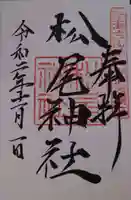 奉拝
松尾神社
令和二年十二月一日